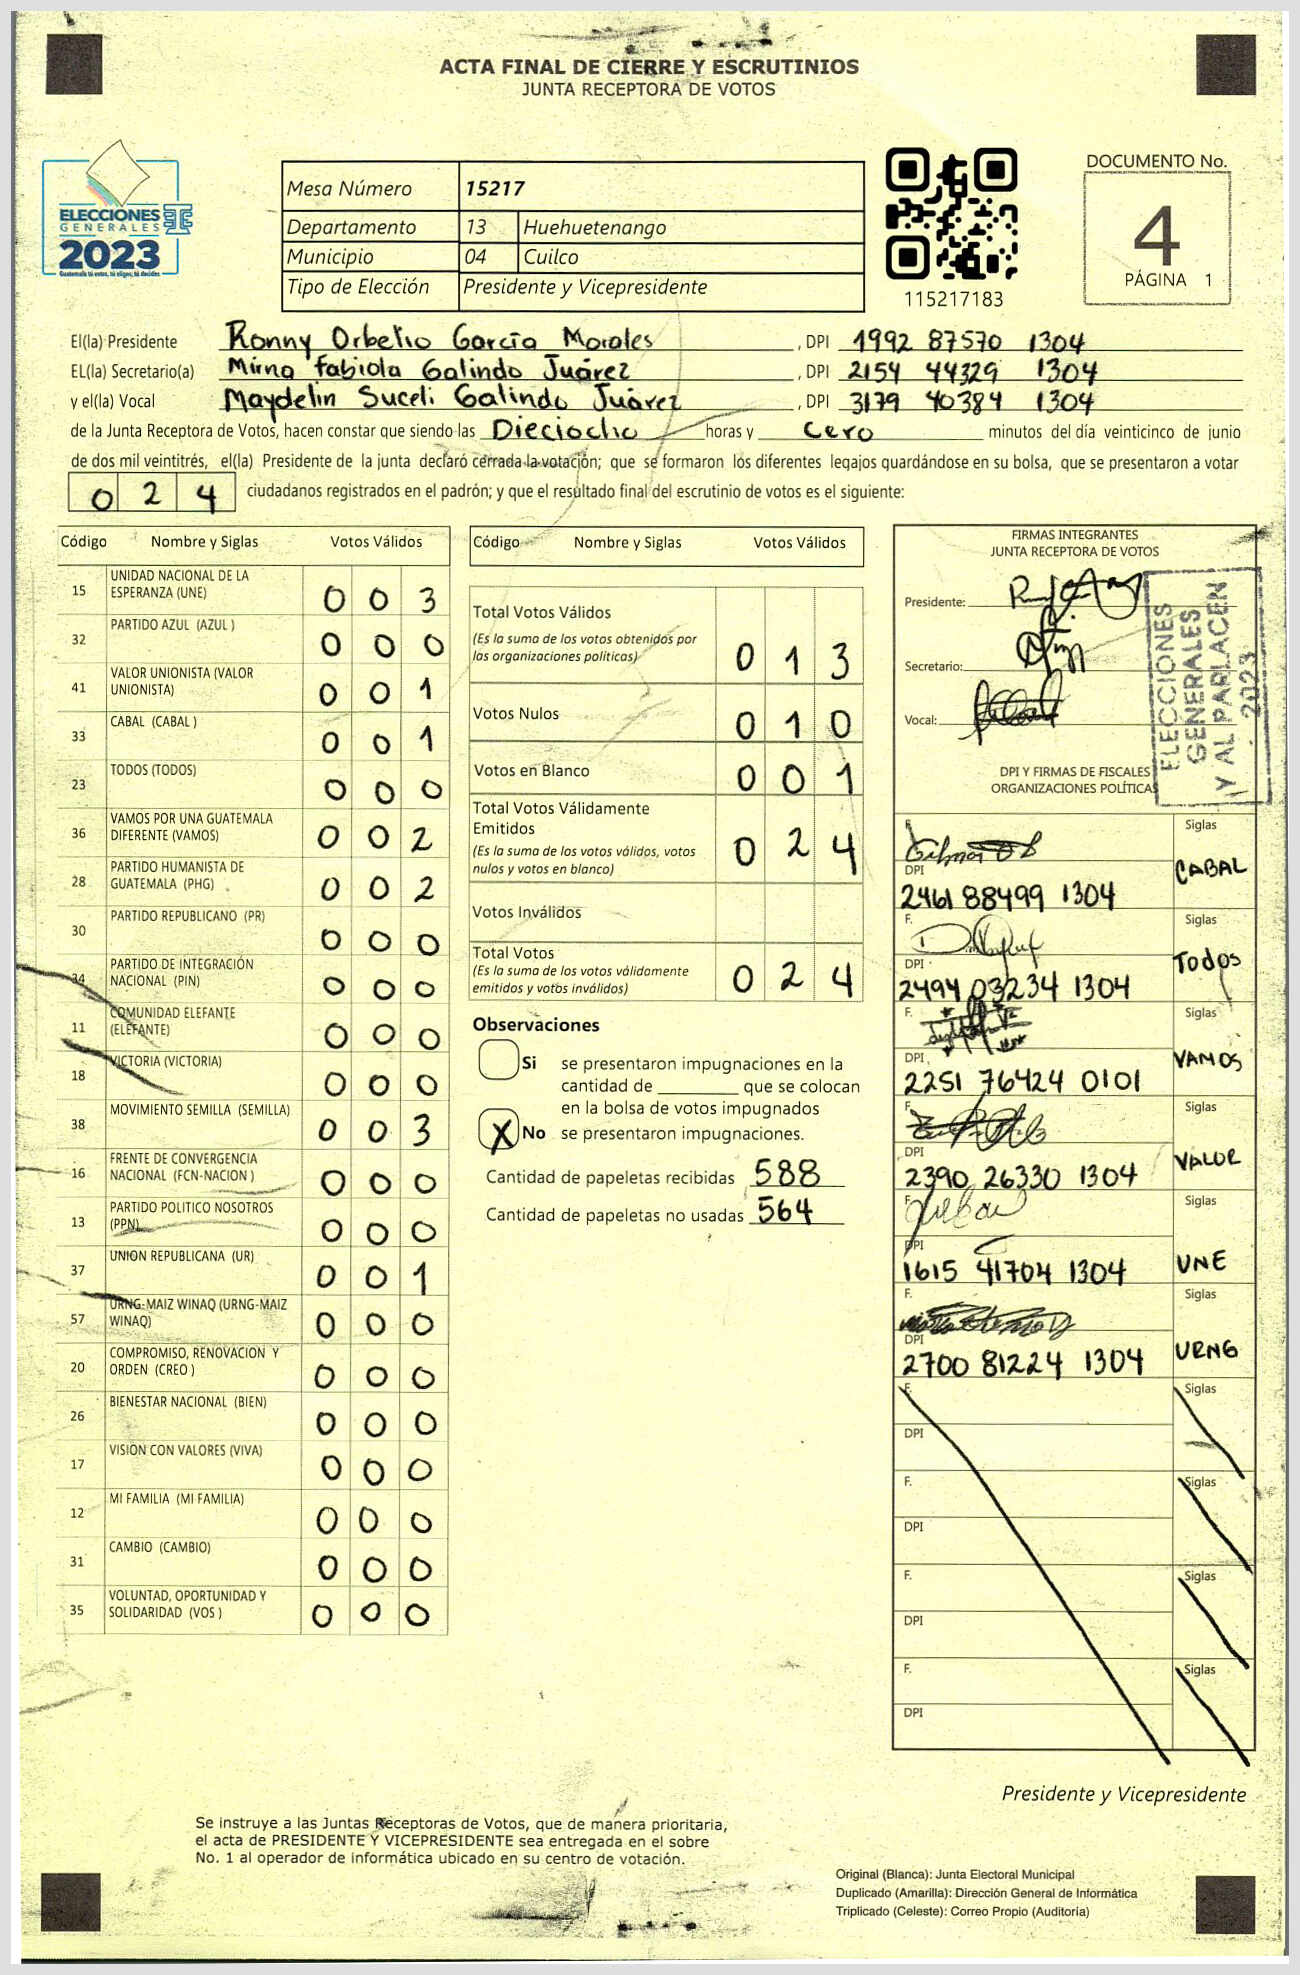 ACTA FINAL DE CIERRE Y ESCRUTINIOS
JUNTA RECEPTORA DE VOTOS
ELECCIONES
GENERALES
2023
Guatemala tú votas, tú eliges, tú decides
Mesa Número 15217
Departamento 13 Huehuetenango
Municipio 04 Cuilco
Tipo de Elección Presidente y Vicepresidente
115217183
DOCUMENTO No.
4
PÁGINA 1
El(la) Presidente Ronny Orbelio García Morales, DPI 1992 87570 1304
EL(la) Secretario(a) Mirna Fabiola Galindo Juárez, DPI 2154 44329 1304
y el(la) Vocal Maydelin Suceli Galindo Juárez, DPI 3179 40384 1304
de la Junta Receptora de Votos, hacen constar que siendo las Dieciocho horas y cero minutos del día veinticinco de junio
de dos mil veintitrés, el(la) Presidente de la junta declaró cerrada la votación; que se formaron los diferentes legajos guardándose en su bolsa, que se presentaron a votar
0 2 4 ciudadanos registrados en el padrón; y que el resultado final del escrutinio de votos es el siguiente:
Código Nombre y Siglas Votos Válidos
15 UNIDAD NACIONAL DE LA ESPERANZA (UNE) 0 0 3
32 PARTIDO AZUL (AZUL ) 0 0 0
41 VALOR UNIONISTA (VALOR UNIONISTA) 0 0 1
33 CABAL (CABAL ) 0 0 1
23 TODOS (TODOS) 0 0 0
36 VAMOS POR UNA GUATEMALA DIFERENTE (VAMOS) 0 0 2
28 PARTIDO HUMANISTA DE GUATEMALA (PHG) 0 0 2
30 PARTIDO REPUBLICANO (PR) 0 0 0
34 PARTIDO DE INTEGRACIÓN NACIONAL (PIN) 0 0 0
11 COMUNIDAD ELEFANTE (ELEFANTE) 0 0 0
18 VICTORIA (VICTORIA) 0 0 0
38 MOVIMIENTO SEMILLA (SEMILLA) 0 0 3
16 FRENTE DE CONVERGENCIA NACIONAL (FCN-NACION ) 0 0 0
13 PARTIDO POLITICO NOSOTROS (PPN) 0 0 0
37 UNION REPUBLICANA (UR) 0 0 1
57 URNG-MAIZ WINAQ (URNG-MAIZ WINAQ) 0 0 0
20 COMPROMISO, RENOVACION Y ORDEN (CREO ) 0 0 0
26 BIENESTAR NACIONAL (BIEN) 0 0 0
17 VISION CON VALORES (VIVA) 0 0 0
12 MI FAMILIA (MI FAMILIA) 0 0 0
31 CAMBIO (CAMBIO) 0 0 0
35 VOLUNTAD, OPORTUNIDAD Y SOLIDARIDAD (VOS ) 0 0 0
Código Nombre y Siglas Votos Válidos
Total Votos Válidos
(Es la suma de los votos obtenidos por
las organizaciones políticas) 0 1 3
Votos Nulos 0 1 0
Votos en Blanco 0 0 1
Total Votos Válidamente
Emitidos
(Es la suma de los votos válidos, votos
nulos y votos en blanco) 0 2 4
Votos Inválidos
Total Votos
(Es la suma de los votos válidamente
emitidos y votos inválidos) 0 2 4
Observaciones
Si se presentaron impugnaciones en la
cantidad de ________ que se colocan
en la bolsa de votos impugnados
X No se presentaron impugnaciones.
Cantidad de papeletas recibidas 588
Cantidad de papeletas no usadas 564
FIRMAS INTEGRANTES
JUNTA RECEPTORA DE VOTOS
Presidente:
Secretario:
Vocal:
ELECCIONES
GENERALES
Y AL PARLACEN
2023
DPI Y FIRMAS DE FISCALES
ORGANIZACIONES POLÍTICAS
F. Siglas
DPI CABAL
2461 88499 1304
F. Siglas
DPI Todos
2494 03234 1304
F. Siglas
DPI VAMOS
2251 76424 0101
F. Siglas
DPI VALOR
2390 26330 1304
F. Siglas
DPI UNE
1615 41704 1304
F. Siglas
DPI URNG
2700 81224 1304
F. Siglas
DPI
F. Siglas
DPI
F. Siglas
DPI
F. Siglas
DPI
Presidente y Vicepresidente
Se instruye a las Juntas Receptoras de Votos, que de manera prioritaria,
el acta de PRESIDENTE Y VICEPRESIDENTE sea entregada en el sobre
No. 1 al operador de informática ubicado en su centro de votación.
Original (Blanca): Junta Electoral Municipal
Duplicado (Amarilla): Dirección General de Informática
Triplicado (Celeste): Correo Propio (Auditoría)